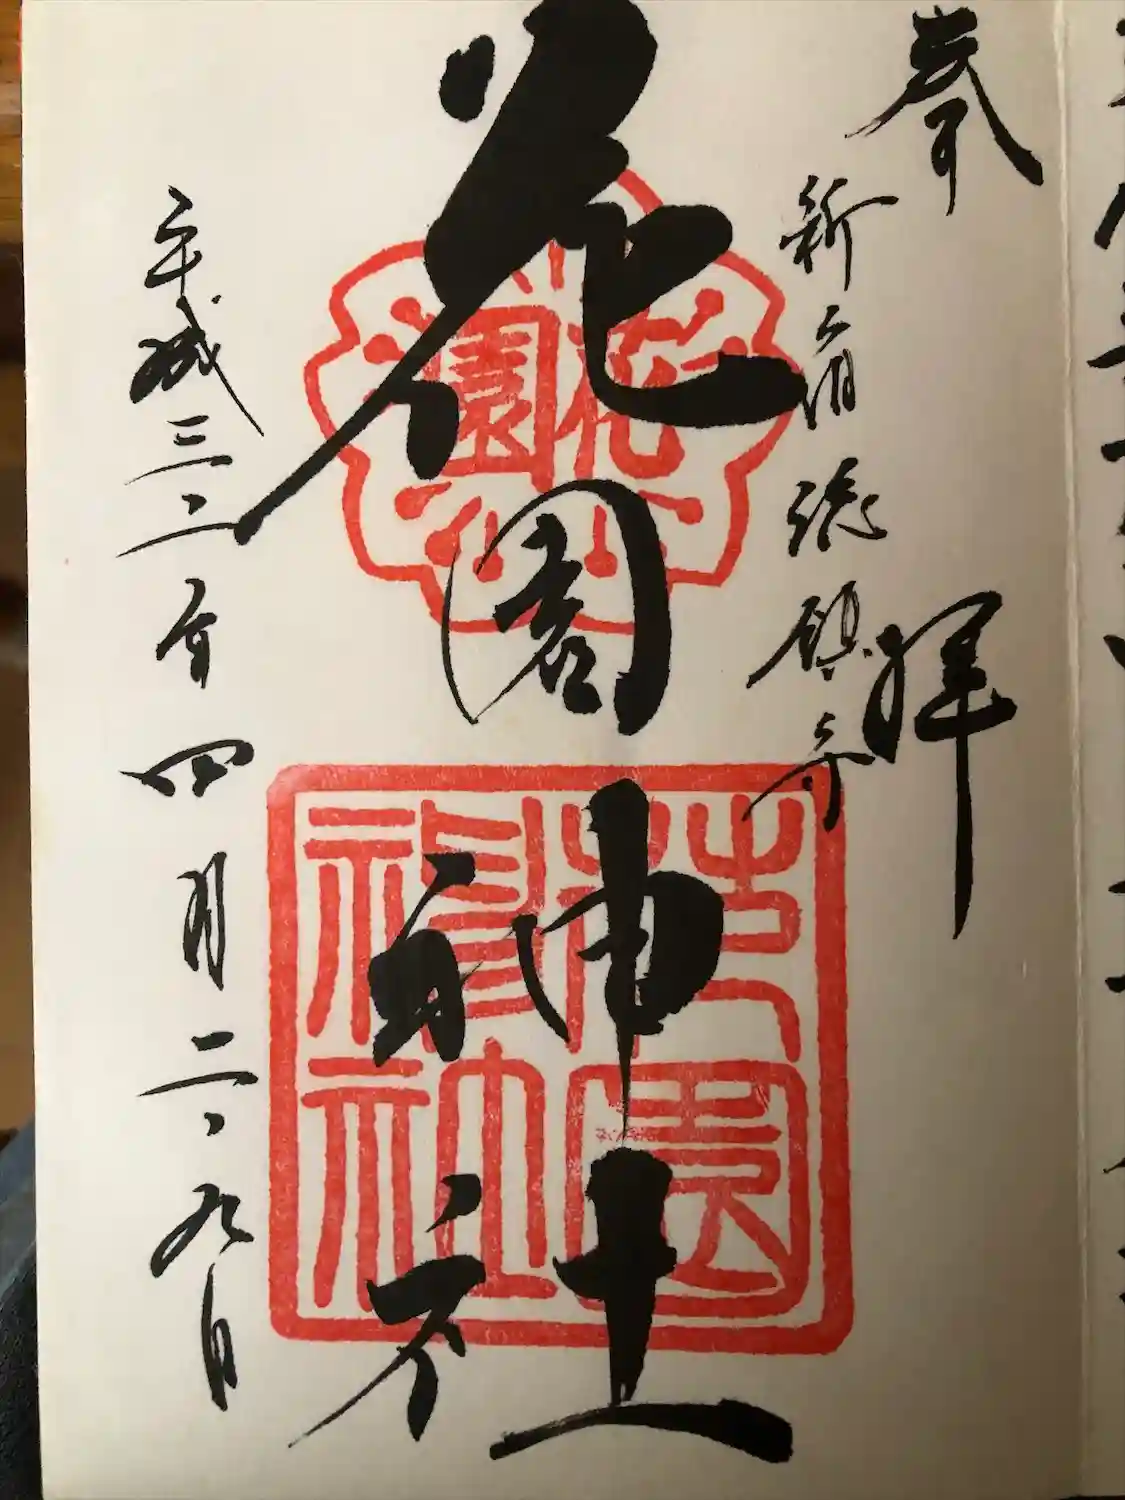 奉拝
新宿総鎮守
花園神社
平成三十一年四月二十九日
花園
花園神社